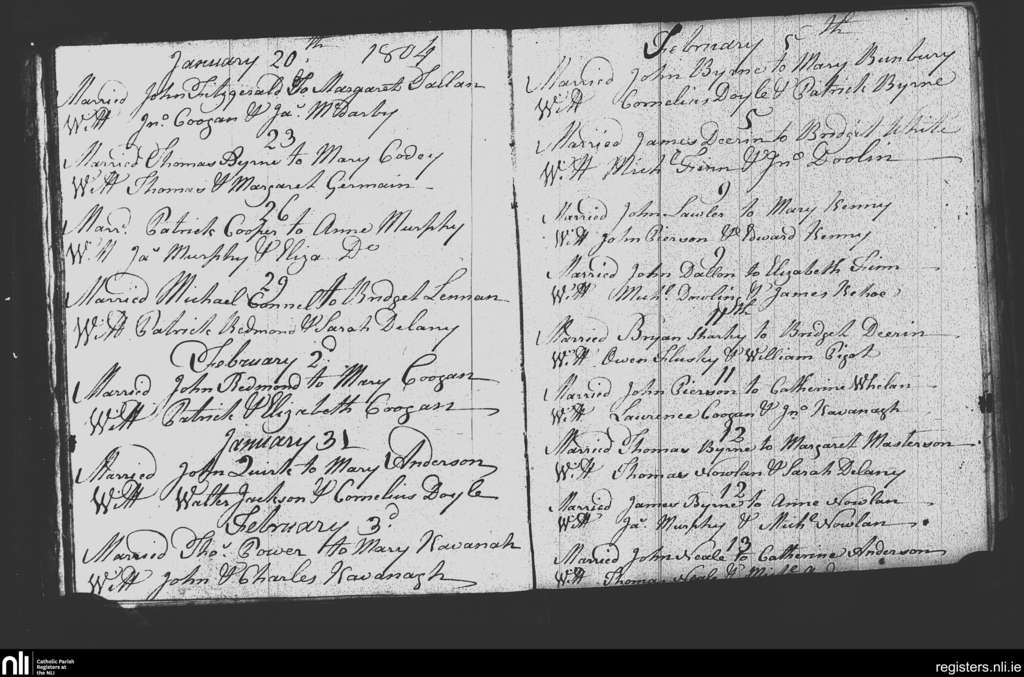 January 20th 1804
Married John Fitzgerald To Margaret Tallan
Witt Jno. Coogan & Ja. McDarby
23
Married Thomas Byrne to Mary Codey
Witt Thomas & Margaret Germain
26
Marrd. Patrick Cooper to Anne Murphy
Witt Jas Murphy & Eliza Do
29
Married Michael Connell to Bridget Lennan
Witt Patrick Redmond & Sarah Delany
February 2d
Married John Redmond to Mary Coogan
Witt Patrick & Elizabeth Coogan
January 31
Married John Quirk to Mary Anderson
Witt Walter Jackson & Cornelius Doyle
February 3d
Married Thos. Power to Mary Kavanah
Witt John & Charles Kavanagh
February 5th
Married John Byrne to Mary Bunbury
Witt Cornelius Doyle & Patrick Byrne
5
Married James Deerin to Bridget White
Witt Michl. Finn & Jno Doolin
9
Married John Lawler to Mary Kenny
Witt John Pierson & Edward Kenny
9
Married John Dallon to Elizabeth Finn
Witt Michl. Dowling & James Kehoe
11th
Married Bryan Sharky to Bridget Deerin
Witt Owen Flusky & William Pigot
11
Married John Pierson to Catherine Whelan
Witt Laurence Coogan & Jno Kavanagh
12
Married Thomas Byrne to Margaret Masterson
Witt Thomas Nowlan & Sarah Delany
12
Married James Byrne to Anne Nowlan
Witt Jas Murphy & Michl Nowlan
13
Married John Neale to Catherine Anderson
Witt Thomas Neale & Michl
nli
Catholic Parish
Registers at
the NLI
registers.nli.ie